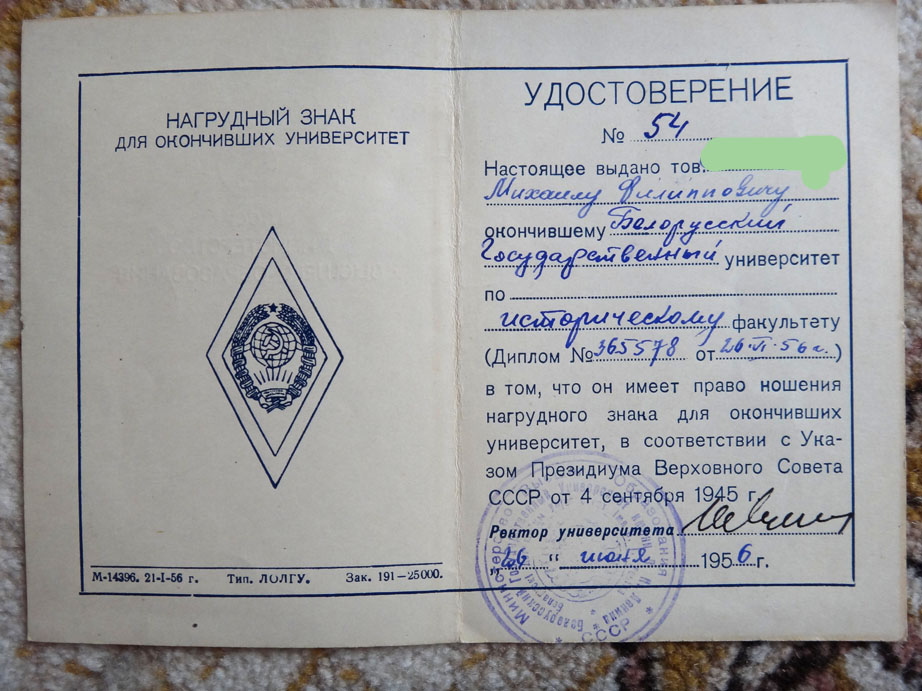 НАГРУДНЫЙ ЗНАК
ДЛЯ ОКОНЧИВШИХ УНИВЕРСИТЕТ
М-14396. 21-I-56 г. Тип. ЛОЛГУ. Зак. 191—25000.
УДОСТОВЕРЕНИЕ
№ 54
Настоящее выдано тов.
Михаилу Филипповичу
окончившему Белорусский
Государственный университет
по
историческому факультету
(Диплом № 365578 от 26.VI.56 г.)
в том, что он имеет право ношения
нагрудного знака для окончивших
университет, в соответствии с Ука-
зом Президиума Верховного Совета
СССР от 4 сентября 1945 г.
Ректор университета
"26" июня 1956 г.
Министерство Высшего Образования СССР